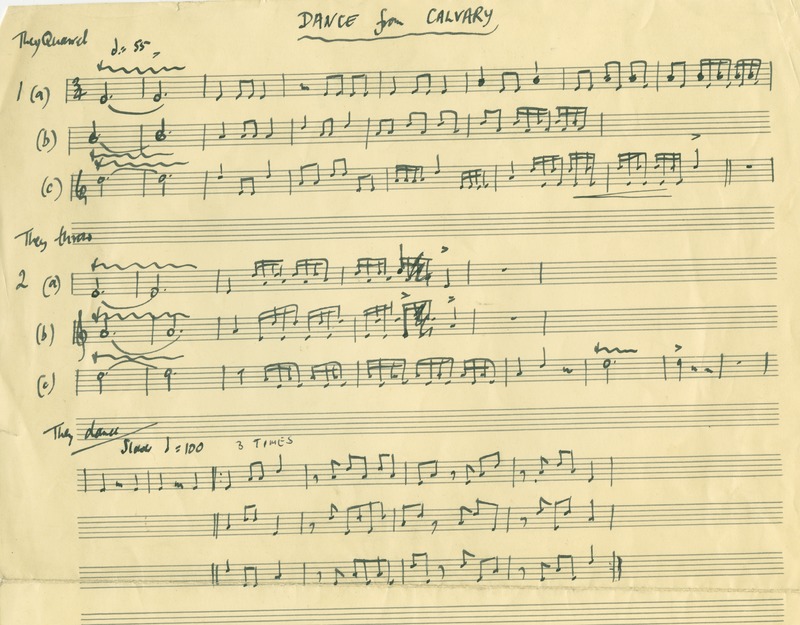 DANCE from CALVARY
They Quarrel
♩. = 55
1 (a)
(b)
(c)
They throw
2 (a)
(b)
(c)
They dance
Slower ♩ = 100 3 TIMES